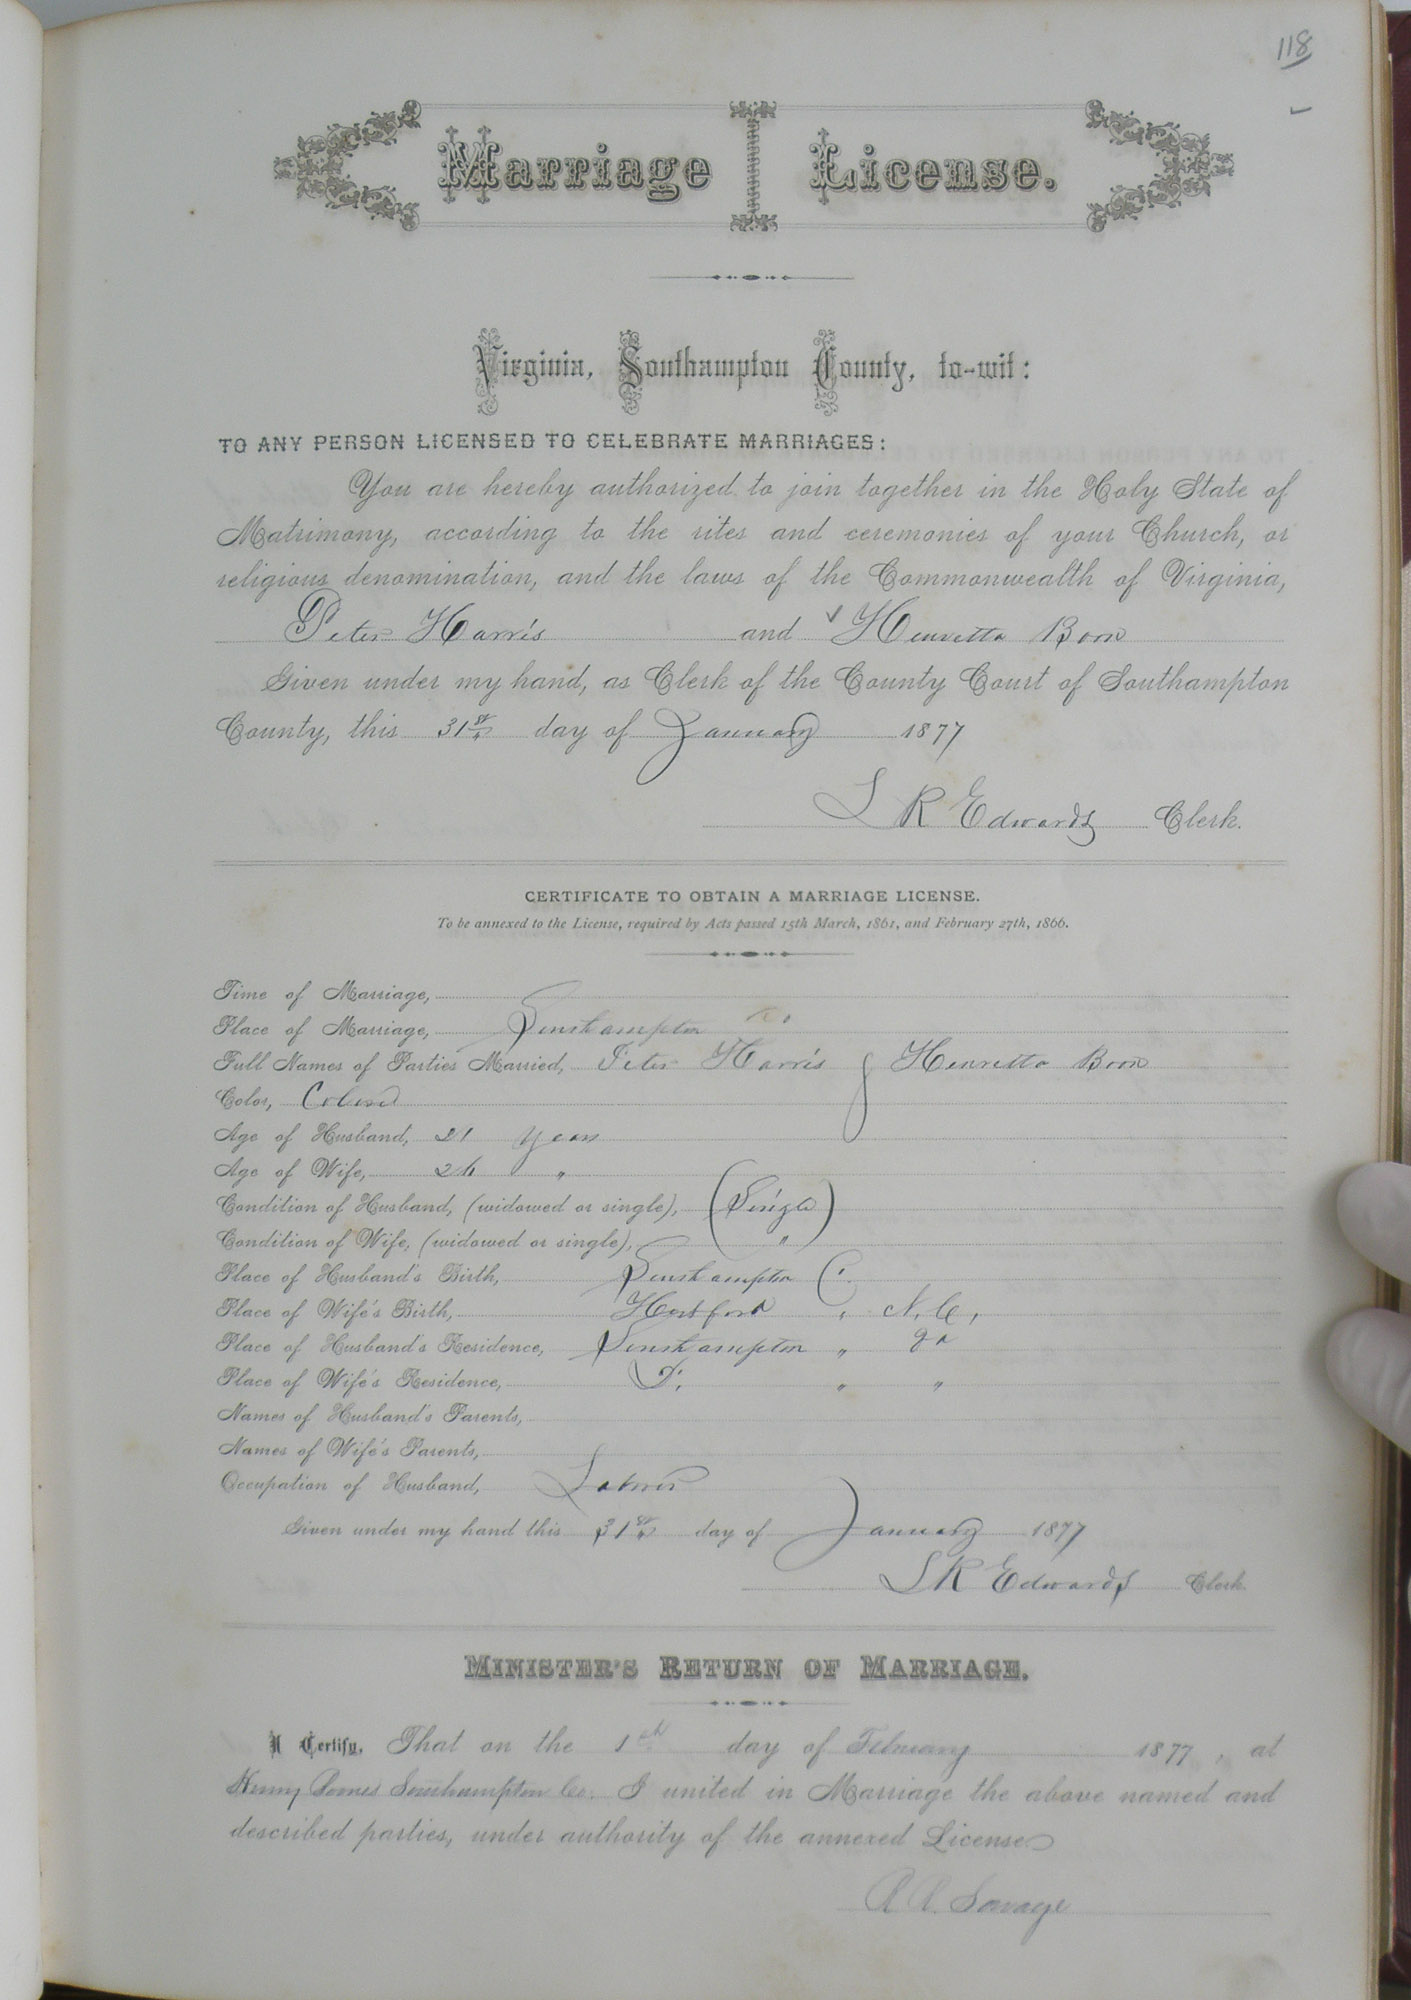 118
Marriage License.
Virginia, Southampton County, to-wit:
TO ANY PERSON LICENSED TO CELEBRATE MARRIAGES:
You are hereby authorized to join together in the Holy State of
Matrimony, according to the rites and ceremonies of your Church, or
religious denomination, and the laws of the Commonwealth of Virginia,
Peter Harris and Henrietta Boon
Given under my hand, as Clerk of the County Court of Southampton
County, this 31st day of January 1877
L R Edwards Clerk.
CERTIFICATE TO OBTAIN A MARRIAGE LICENSE.
To be annexed to the License, required by Acts passed 15th March, 1861, and February 27th, 1866.
Time of Marriage,
Place of Marriage, Southampton Co
Full Names of Parties Married, Peter Harris & Henrietta Boon
Color, Colored
Age of Husband, 21 years
Age of Wife, 26 "
Condition of Husband, (widowed or single), (Single)
Condition of Wife, (widowed or single), "
Place of Husband's Birth, Southampton Co.
Place of Wife's Birth, Hertford " N.C.,
Place of Husband's Residence, Southampton " Va
Place of Wife's Residence, Do. " "
Names of Husband's Parents,
Names of Wife's Parents,
Occupation of Husband, Laborer
Given under my hand this 31st day of January 1877
L R Edwards Clerk.
MINISTER'S RETURN OF MARRIAGE.
I Certify, That on the 1st day of February 1877, at
Henry Southampton Co. I united in Marriage the above named and
described parties, under authority of the annexed License
R. R. Savage